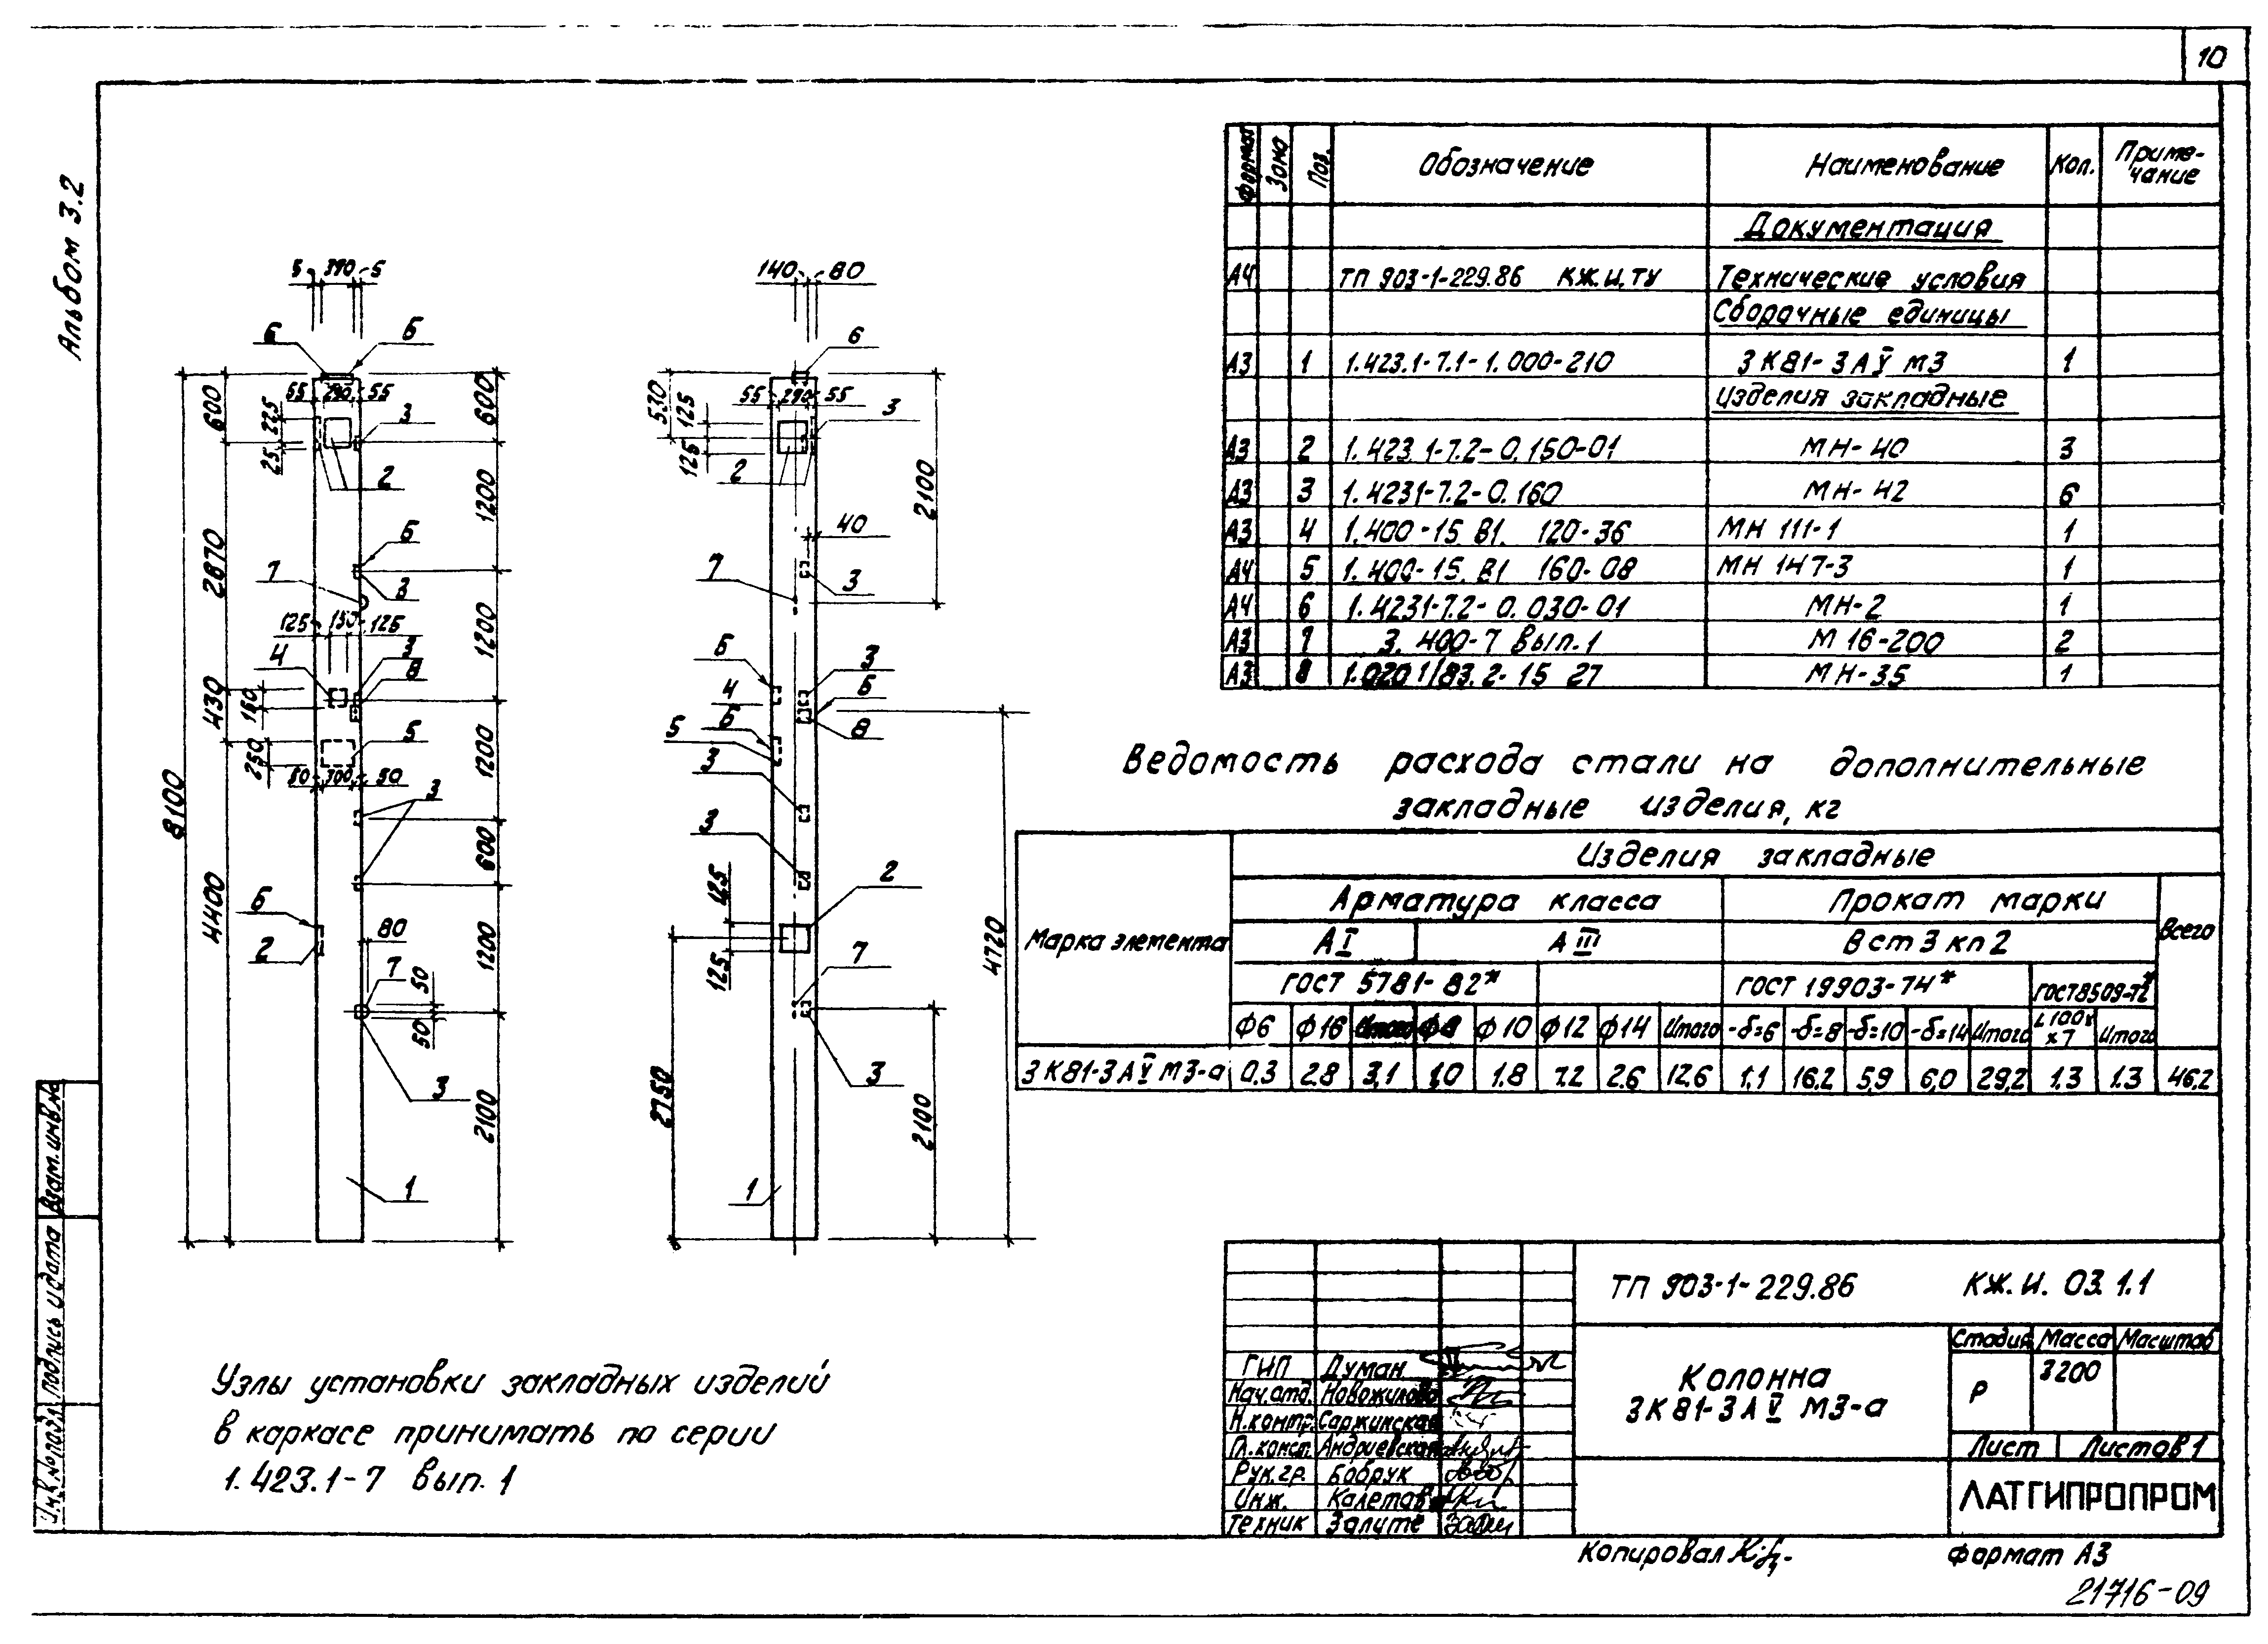 10
Альбом 3.2
5 390 5
6 Б
600
55 290 55
225
25
3
2
600
1200
2870
Б
7
3
1200
125 150 125
4
3
8
430
160
5
250
80 300 50
1200
8100
3
600
4400
Б
2
80
7
50
50
1200
3
2100
1
140 80
6
530
125
125
55 290 55
3
2
2100
40
7
3
Б
3
4
Б
Б
8
5
3
3
125
2
125
7
4720
2750
3
2100
1
Узлы установки закладных изделий
в каркасе принимать по серии
1.423.1-7 вып. 1
Формат Зона Поз. Обозначение Наименование Кол. Приме-
чание
Документация
А4 ТП 903-1-229.86 КЖ.И.ТУ Технические условия
Сборочные единицы
А3 1 1.423.1-7.1-1.000-210 3К81-3АV М3 1
Изделия закладные
А3 2 1.423.1-7.2-0.150-01 МН-40 3
А3 3 1.4231-7.2-0.160 МН-42 6
А3 4 1.400-15 В1. 120-36 МН 111-1 1
А4 5 1.400-15. В1 160-08 МН 147-3 1
А4 6 1.4231-7.2-0.030-01 МН-2 1
А3 7 3.400-7 вып.1 М 16-200 2
А3 8 1.020.1/83.2-15 27 МН-35 1
Ведомость расхода стали на дополнительные
закладные изделия, кг
Марка элемента Изделия закладные
Арматура класса Прокат марки Всего
АI АIII Вст3кп2
ГОСТ 5781-82* ГОСТ 19903-74* ГОСТ 8509-72*
ф6 ф16 Итого ф8 ф10 ф12 ф14 Итого -δ=6 -δ=8 -δ=10 -δ=14 Итого L100х
х7 Итого
3К81-3АV М3-а 0,3 2.8 3,1 1,0 1.8 7.2 2.6 12.6 1,1 16,2 5,9 6,0 29,2 1.3 1.3 46,2
ТП 903-1-229.86 КЖ.И. 03.1.1
Колонна
3К81-3АV М3-а
Стадия Масса Масштаб
Р 3200
Лист Листов 1
ЛАТГИПРОПРОМ
ГИП Думан
Нач.отд. Новожилова
Н.контр. Саржинская
Гл.конст. Андриевская
Рук.гр. Бобрук
Инж. Калетова
Техник Залите
Копировал
Формат А3
21716-09
Взам.инв.№
Подпись и дата
Инв.№ подл.